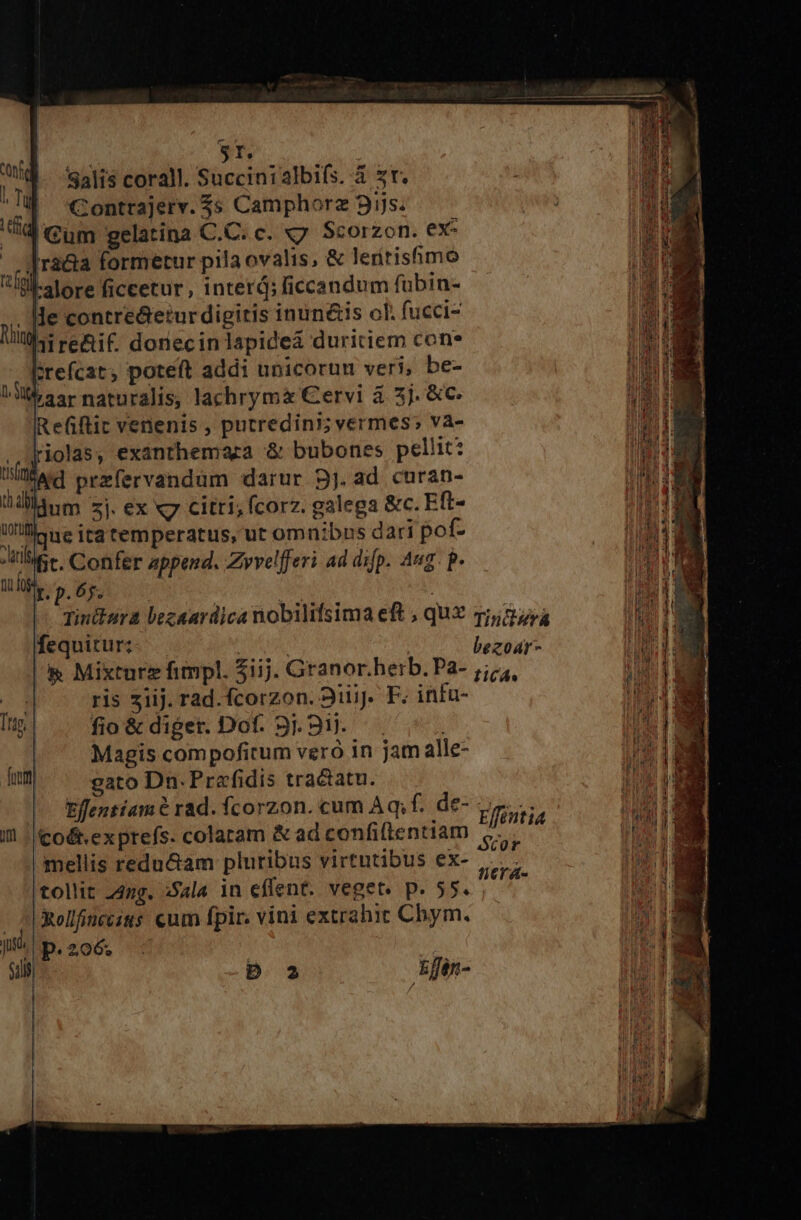 51.
Salis corall. Succini albiſs. ā ʒ1.
Contrajerv. ℥s Camphoræ ℈ijs.
Cum gelatina C.C. c. 🜄 Scorzon. ex-
racta formetur pila ovalis, & lentiſſimo
calore ſiccetur, interq́; ſiccandum ſubin-
de contrectetur digitis inunctis ol. ſucci-
ni rectif. donec in lapideā duritiem con-
creſcat, poteſt addi unicornu veri, be-
zaar naturalis, lachrymæ Cervi ā ʒj. &c.
Reſiſtit venenis, putredini; vermes, va-
riolas, exanthemata & bubones pellit:
Ad præſervandum datur ℈j. ad curan-
dum ʒj. ex 🜄 citri, ſcorz. galega &c. Eſt-
que ita temperatus, ut omnibus dari poſ-
ſit. Confer append. Zvvelfferi ad diſp. Aug. p.
r. p. 65.
Tinctura bezaardica nobiliſsima eſt, quæ
ſequitur:
Tinctura
bezoar-
tica.
℞ Mixturæ ſimpl. ℥iij. Granor. herb. Pa-
ris ʒiij. rad. ſcorzon. ℈iiij. F. infu-
ſio & diger. Doſ. ℈j. ℈ij.
Magis compoſitum verò in jam alle-
gato Dn. Præſidis tractatu.
Eſſentiam è rad. ſcorzon. cum Aq. f. de-
coct. expreſs. colatam & ad conſiſtentiam
mellis reductam pluribus virtutibus ex-
tollit Ang. Sala in eſſent. veget. p. 55.
Rolfinccius cum ſpir. vini extrahit Chym.
p. 206.
Eſſentia
Scor
nera-
D 2
Eſſen-